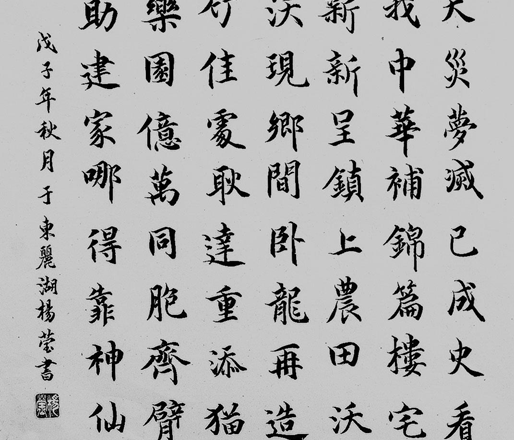 天災夢滅已成史看
我中華補錦篇樓宅
新新呈鎮上農田沃
沃現鄉間臥龍再造
竹佳處耿達重添猫
樂園億萬同胞齊臂
助建家哪得靠神仙
戊子年秋月于東麗湖楊莹書